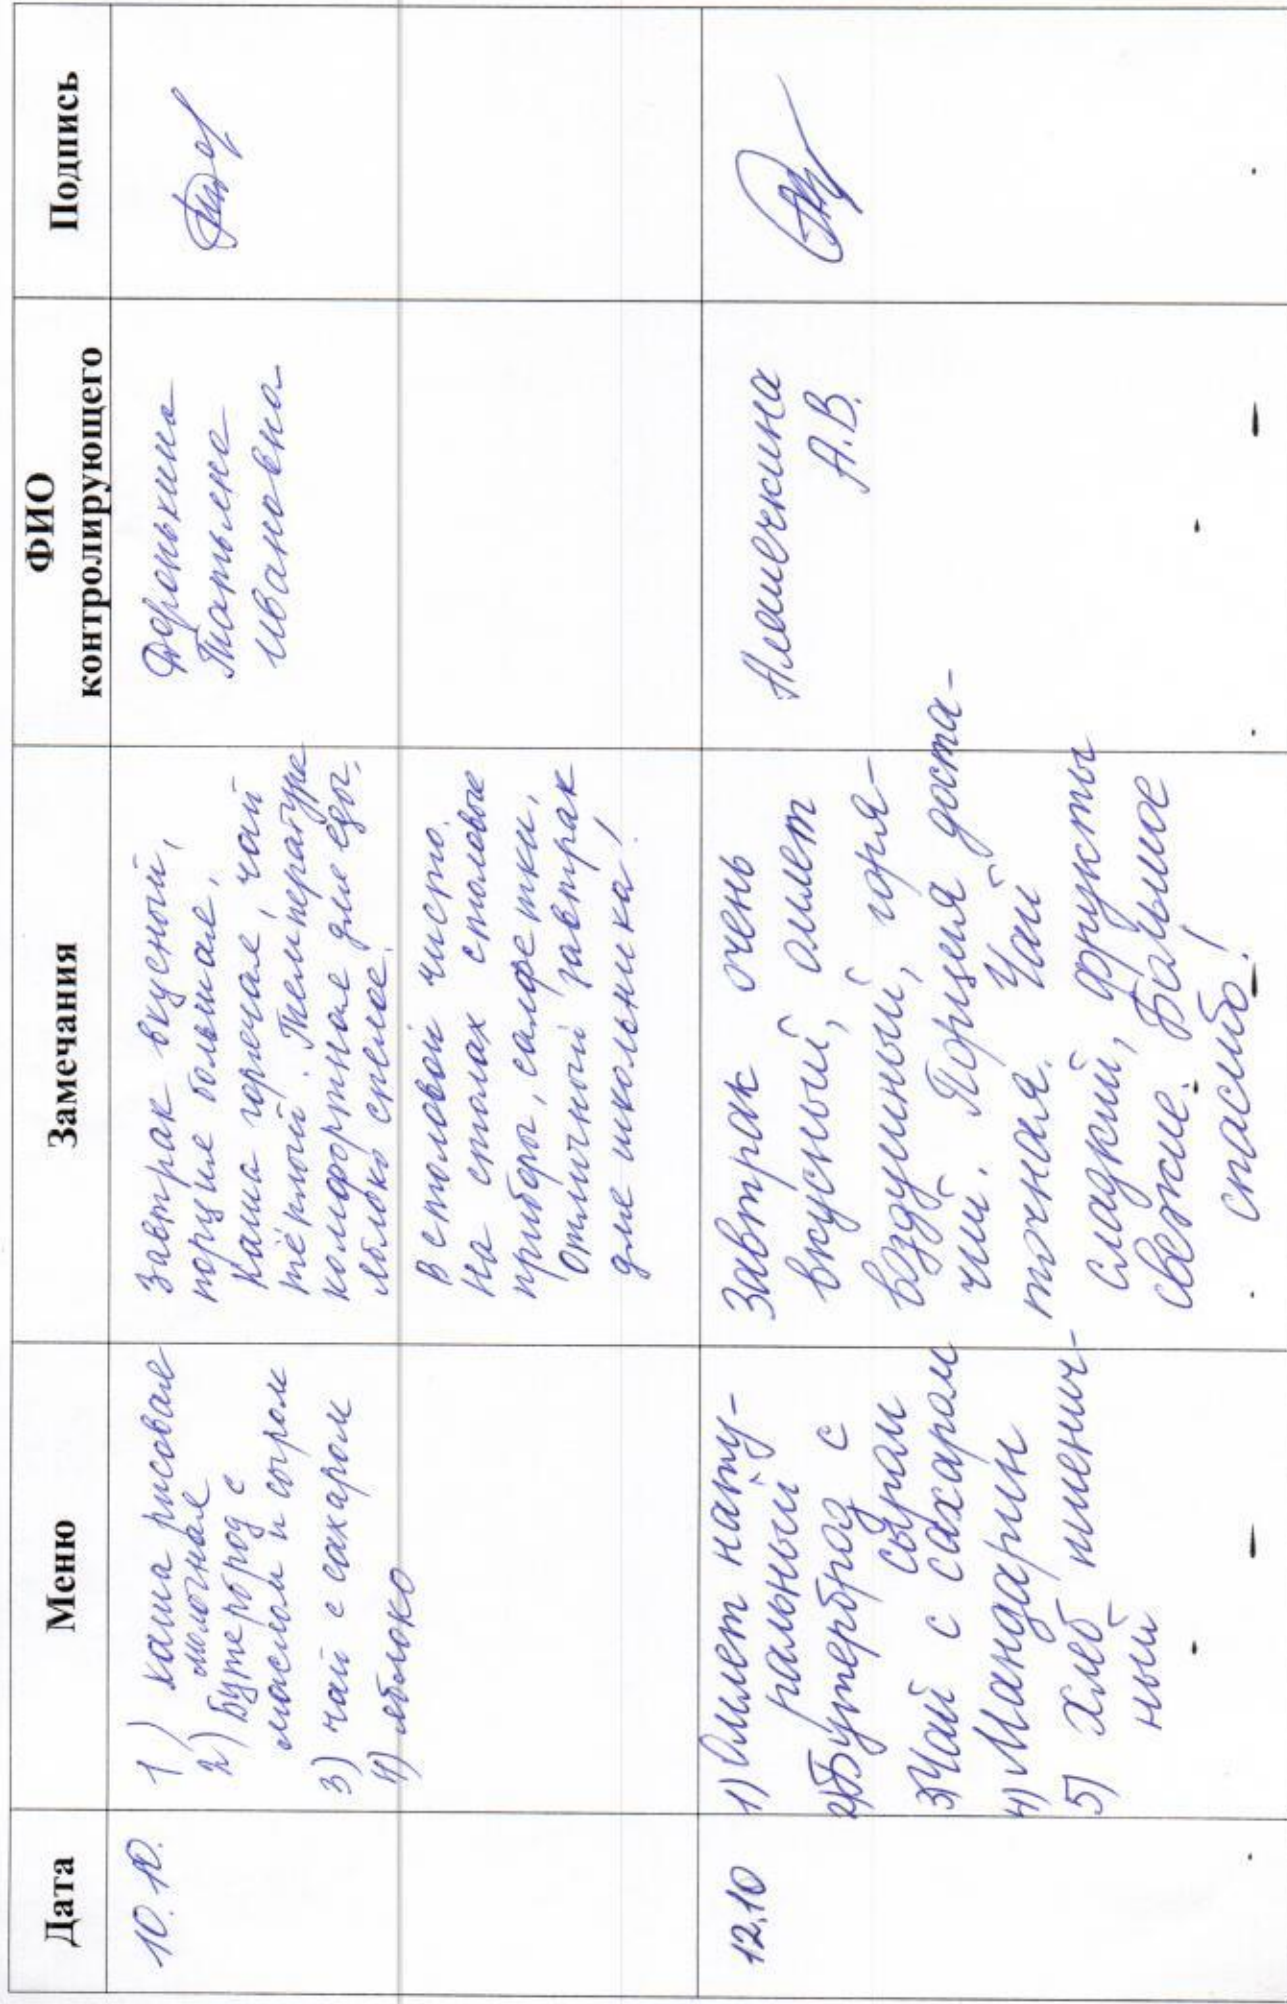 Дата
Меню
Замечания
ФИО
контролирующего
Подпись
10.10.
1) каша рисовая
молочная
2) Бутерброд с
маслом и сыром
3) чай с сахаром
4) яблоко
Завтрак вкусный,
порция большая,
Каша горячая, чай
тёплый. Температура
комфортная для еды,
яблоко спелое.
В столовой чисто.
На столах столовые
приборы, салфетки.
Отличный завтрак
для школьника!
Татьяна
Ивановна
12.10
1) Омлет нату-
ральный
2) Бутерброд с
сыром
3) Чай с сахаром
4) Мандарин
5) Хлеб пшенич-
ный
Завтрак очень
вкусный, омлет
воздушный, горя-
чий. Порция доста-
точная. Чай
сладкий, фрукты
свежие. Большое
спасибо!
Алешечкина
А.В.